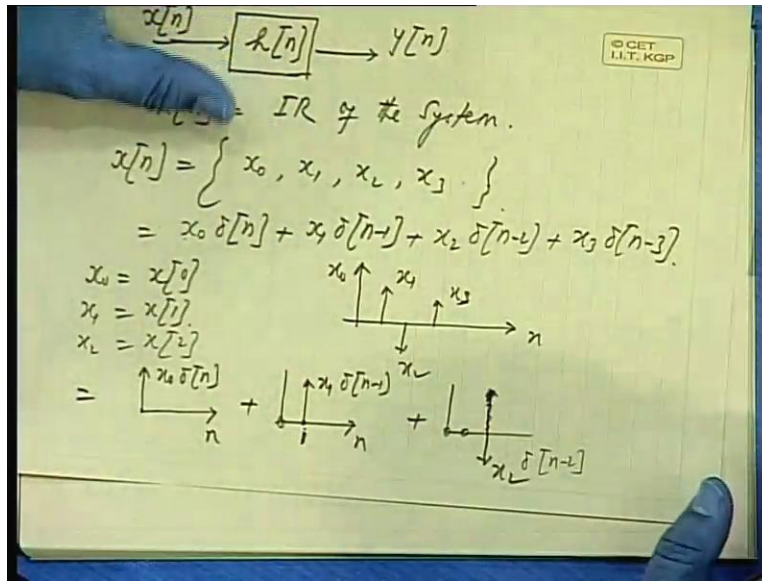 x[n] → h[n] → y[n]
© CET
I.I.T. KGP
= IR of the System.
x[n] = { x₀, x₁, x₂, x₃ . }
= x₀ δ[n] + x₁ δ[n-1] + x₂ δ[n-2] + x₃ δ[n-3].
x₀ = x[0]
x₁ = x[1].
x₂ = x[2]
x₀ x₁ x₃ n
x₂
= x₀ δ[n] + x₁ δ[n-1] +
n 1 n x₂ δ[n-2]